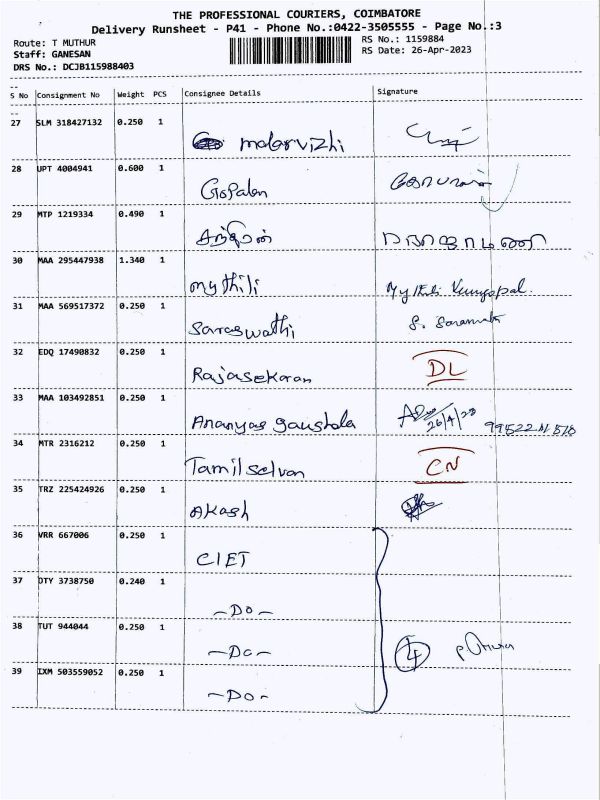 THE PROFESSIONAL COURIERS, COIMBATORE
Delivery Runsheet - P41 - Phone No.:0422-3505555 - Page No.:3
Route: T MUTHUR
RS No.: 1159884
Staff: GANESAN
RS Date: 26-Apr-2023
DRS No.: DCJB115988403
S No Consignment No Weight PCS Consignee Details Signature
27 SLM 318427132 0.250 1
malarvizhi
28 UPT 4004941 0.600 1
Gopalan
29 MTP 1219334 0.490 1
30 MAA 295447938 1.340 1
mythili
31 MAA 569517372 0.250 1
Saraswathi S.
32 EDQ 17490832 0.250 1
Rajasekaran DL
33 MAA 103492851 0.250 1
Ananyas gaushala 26/4/23
34 MTR 2316212 0.250 1
Tamilselvan CN
35 TRZ 225424926 0.250 1
Akash
36 VRR 667006 0.250 1
CIET
37 DTY 3738750 0.240 1
-Do-
38 TUT 944044 0.250 1
-Do- 4
39 IXM 503559052 0.250 1
-Do-